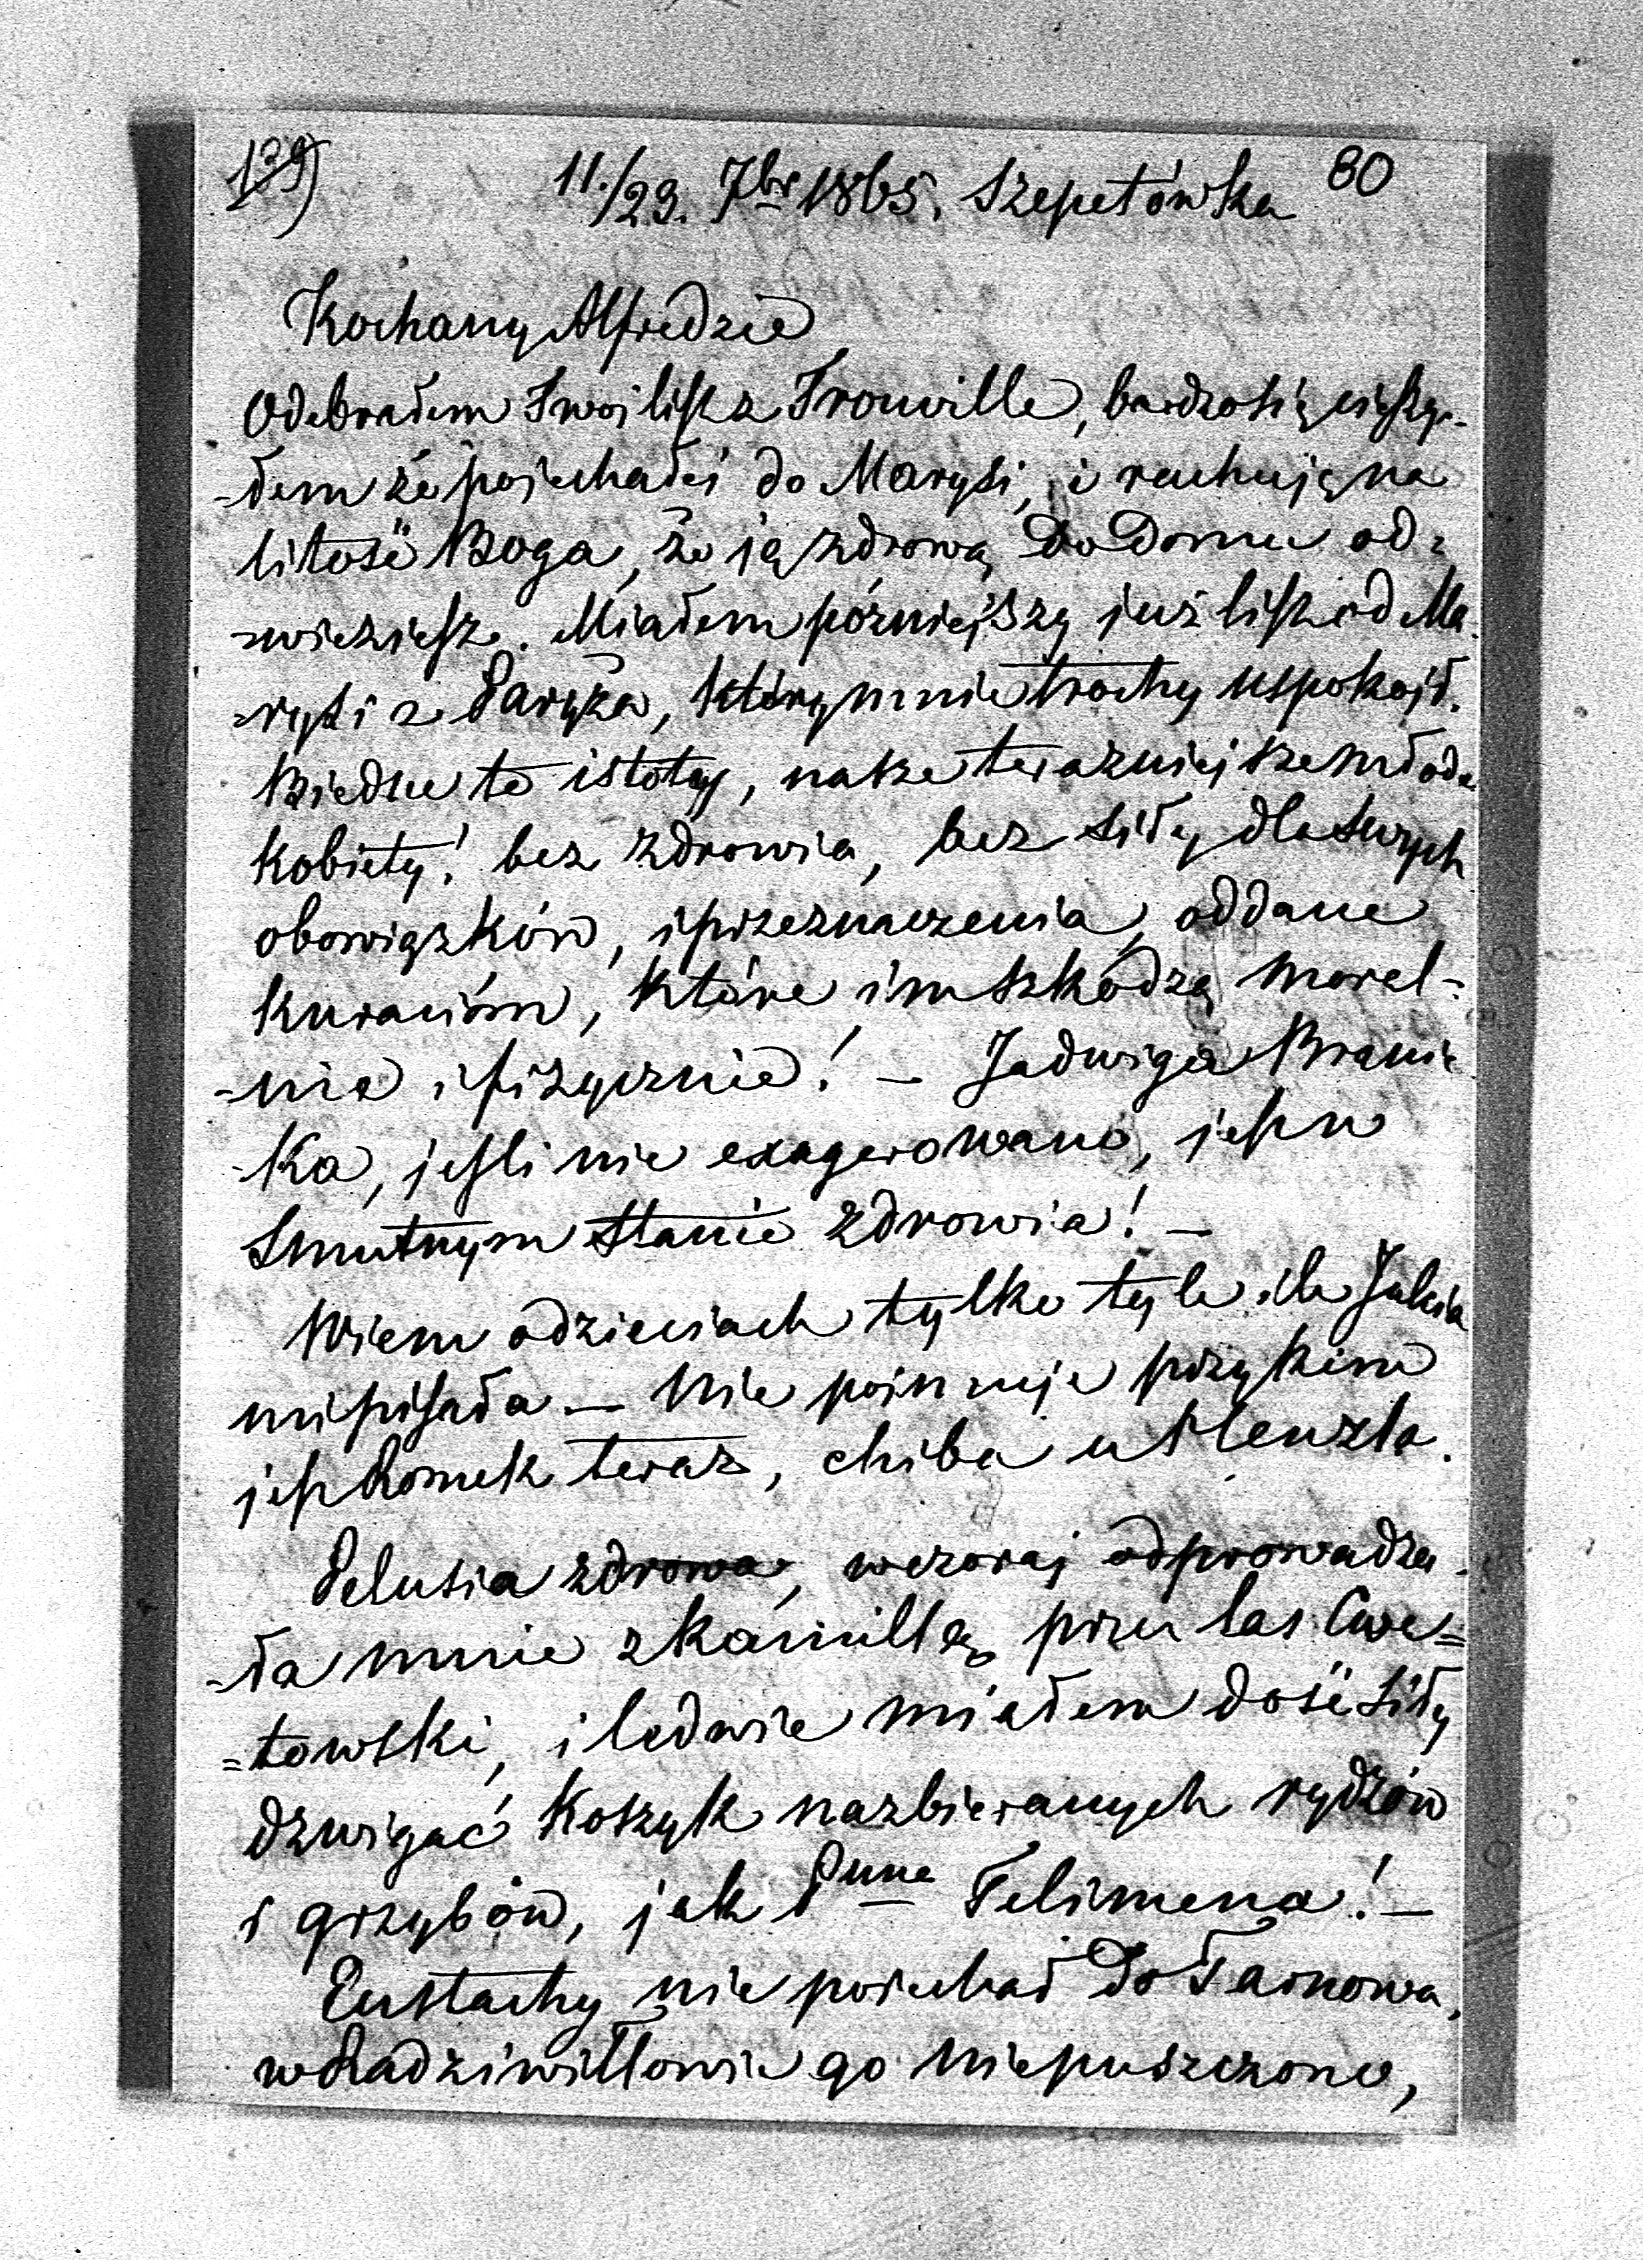 139)
11./23. 7br 1865. Szepetówka 80
Kochany Alfredzie
Odebrałem Twoj list z Trouville, bardzo się cieszy-
-łem że pojechałeś do Marysi, i rachuję na
litość Boga, że ją zdrową do domu od=
=wieziesz. Miałem pózniejszy już list od Ma
=rysi z Paryża, który mnie trochy uspokoił.
Biedne to istoty, nasze terazniejsze młode
kobiety! bez zdrowia, bez siły dla swych
obowiązków, i przeznaczenia, oddane
kuraciom, które im szkodzą moral-
-nie i fizycznie! – Jadwiga Branic
-ka, jeśli nie exagerowano, jest w
smutnym stanie zdrowia! –
Wiem o dzieciach tylko tyle, ile Julcia
mi pisała – Nie pojmuje przy kim
jest Romek teraz, chiba u
Pelusia zdrowa, wczoraj odprowadza-
-ła mnie z Kamillą przez las Cwe=
=towski, i ledwie miałem dość siły
dzwigać koszyk nazbieranych rydzów
i grzybów, jak Pnna Telimena! –
Eustachy nie pojechał do Tarnowa,
w Radziwiłłowie go niepuszczono,